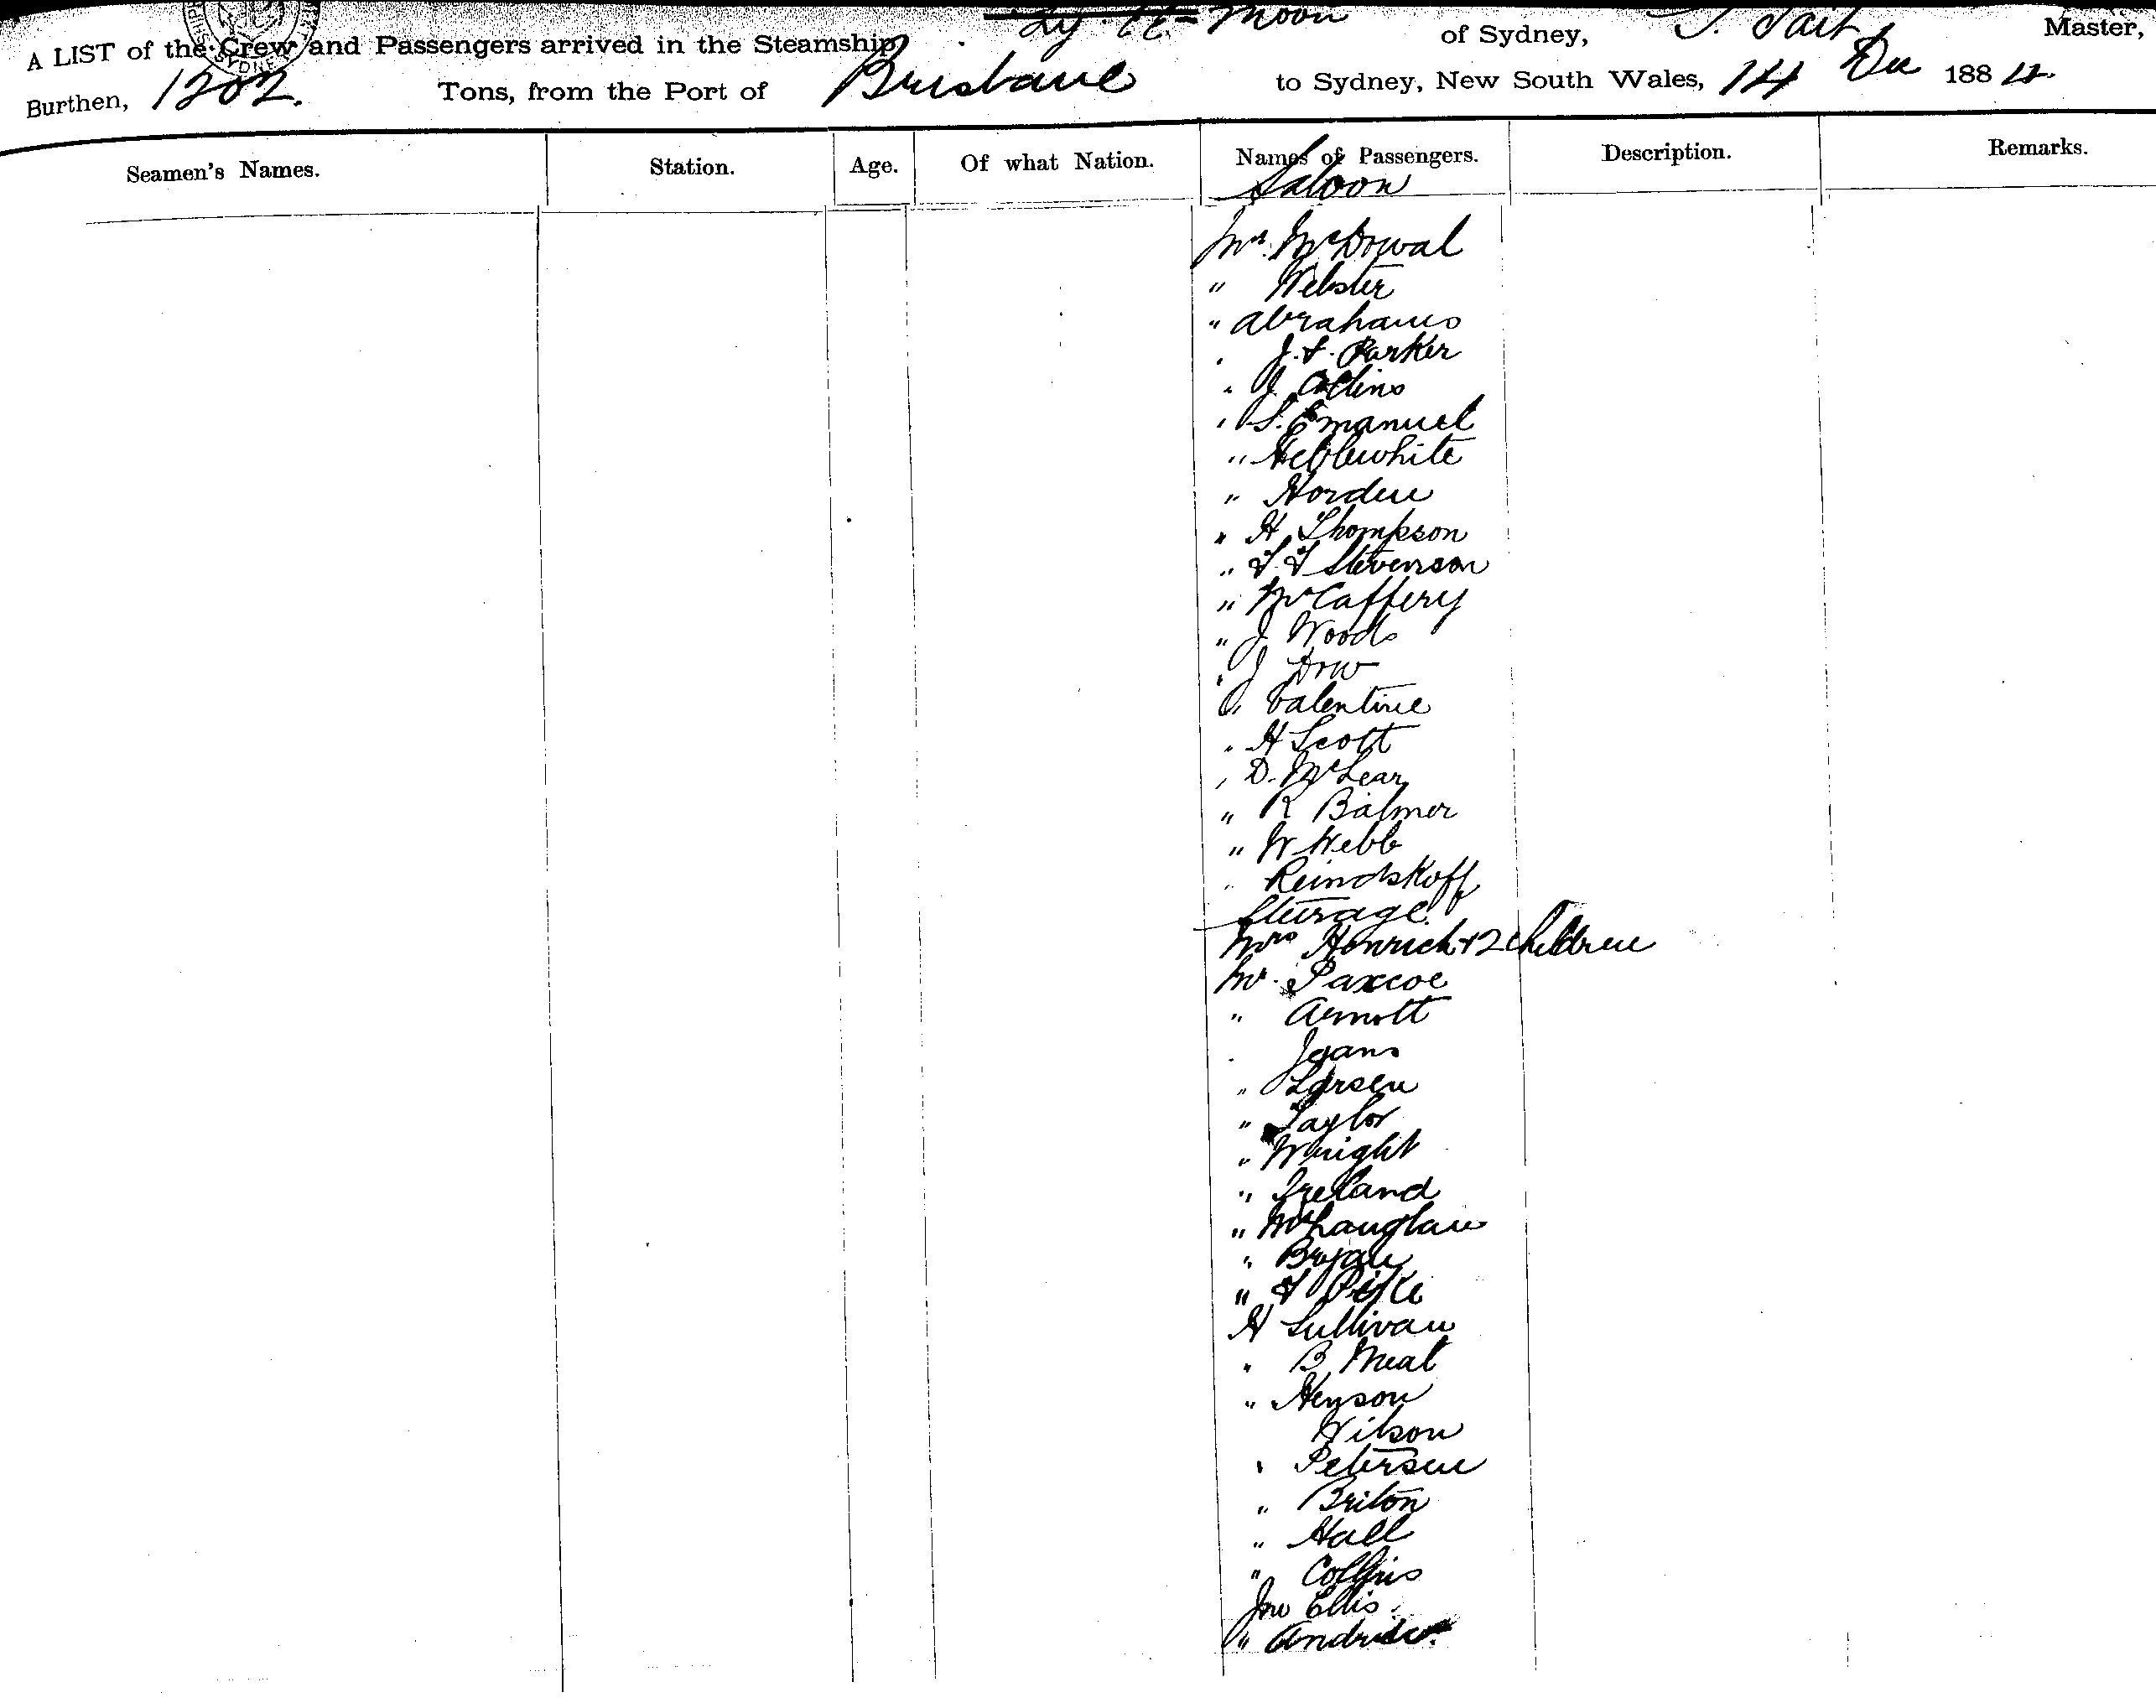 Ly-Ee-Moon
A LIST of the Crew and Passengers arrived in the Steamship of Sydney, T. Tait Master,
Burthen, 1202. Tons, from the Port of Brisbane to Sydney, New South Wales, 14 Dec 188
Seamen's Names. Station. Age. Of what Nation. Names of Passengers. Description. Remarks.
Saloon
McDowal
" Webster
" Abrahams
" Parker
" J. Collins
" S. Emanuel
" Hebblewhite
" Hordern
" H Thompson
" Stevenson
" McCaffery
" J Woods
" J Dow
" Valentine
" H Scott
" D. McLean
" R Balmer
" W Webb
" Reindskoff
Steerage
Mrs Henrich + 2 children
Mr. Paxcoe
" Arnott
" Jeans
" Larsen
" Taylor
" Wright
" Ireland
" McLauglan
" Bryan
" Pike
H Sullivan
" B Meal
" Henson
Wilson
" Petersen
" Briton
" Hall
" Collins
Jno Ellis
" Andrew